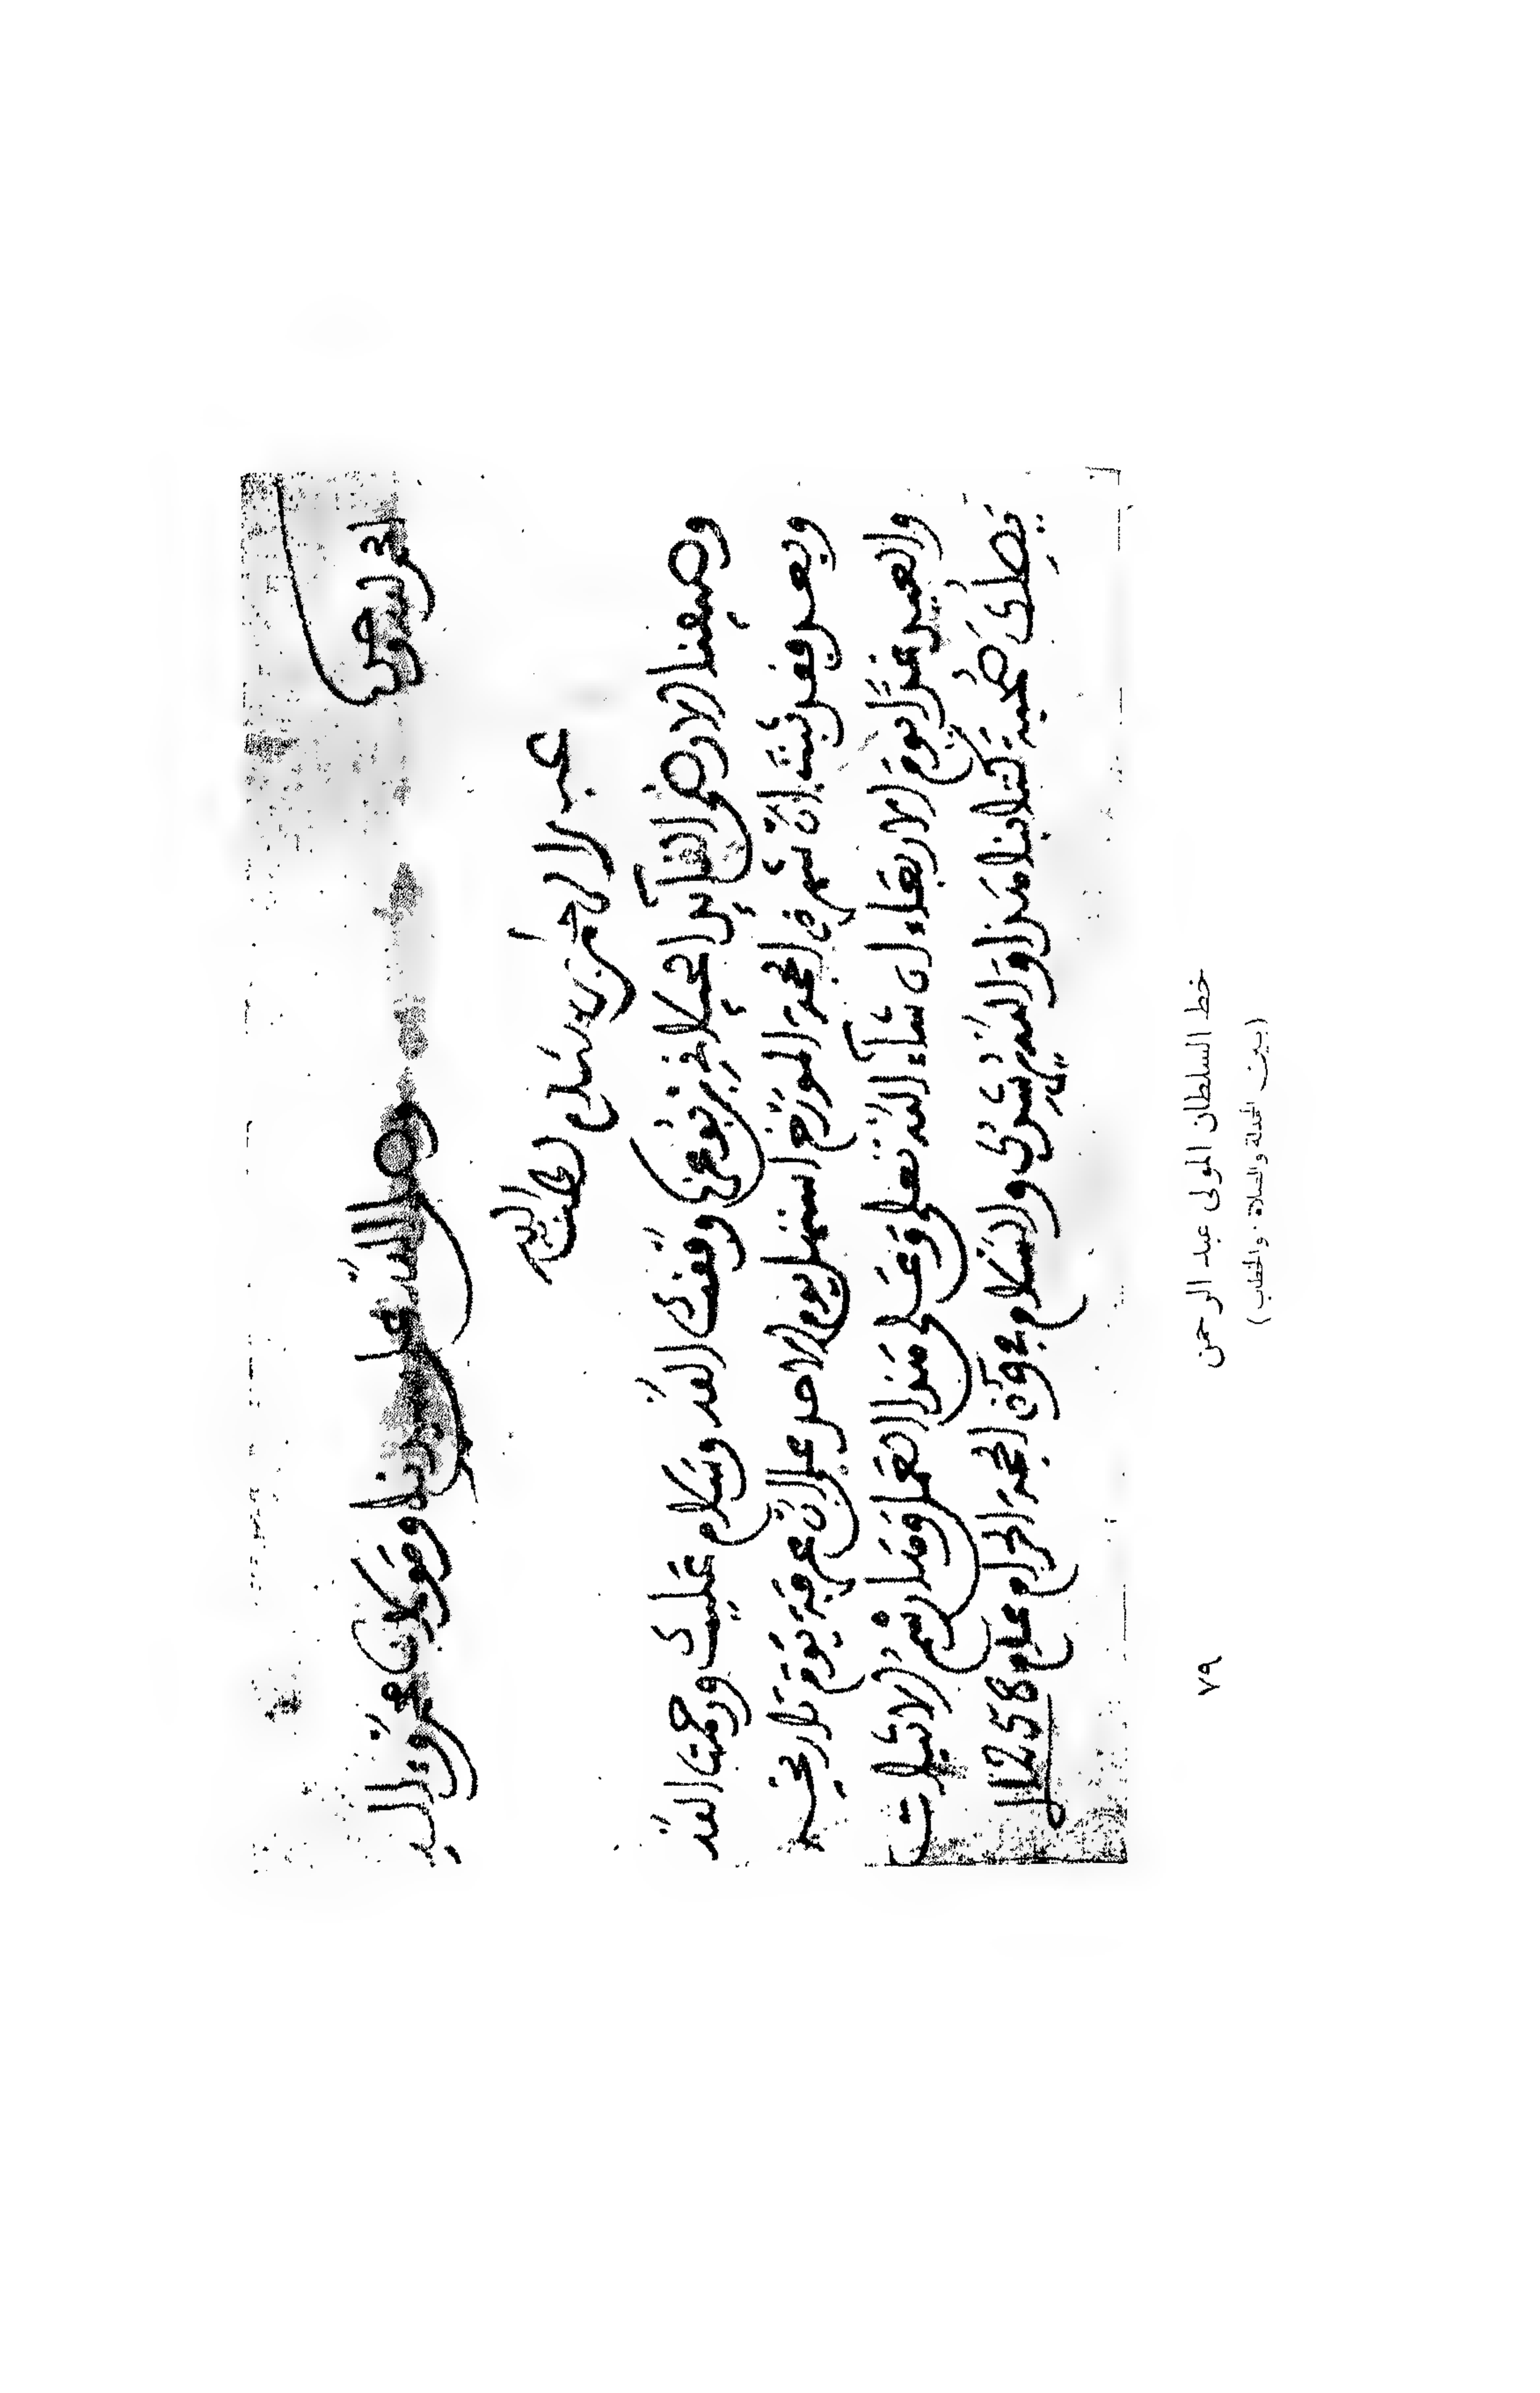 الحمد لله وحده وصلى الله على سيدنا ومولانا محمد وآله
عبد الرحمن بن هشام لطف الله به
وصيفنا الارضى القايد الجيلاني بن بوعزة وفقك الله وسلام عليك ورحمت الله
وبعد فقد ثبت ان شهر ذي الحجة المورخ استهل يوم الاحد على ان عرفة يوم تاريخه
والعيد غدا يوم الاربعاء ان شاء الله تعلى وعلى هذا العمل وهذا رسم الاثبات
يصلك صحبة كتابنا هذا والله يرشدك والسلام في ذي الحجة الحرام عام 1258
خط السلطان المولى عبد الرحمن
(بين الحمدلة والصلاة، والخطاب)
٧٩